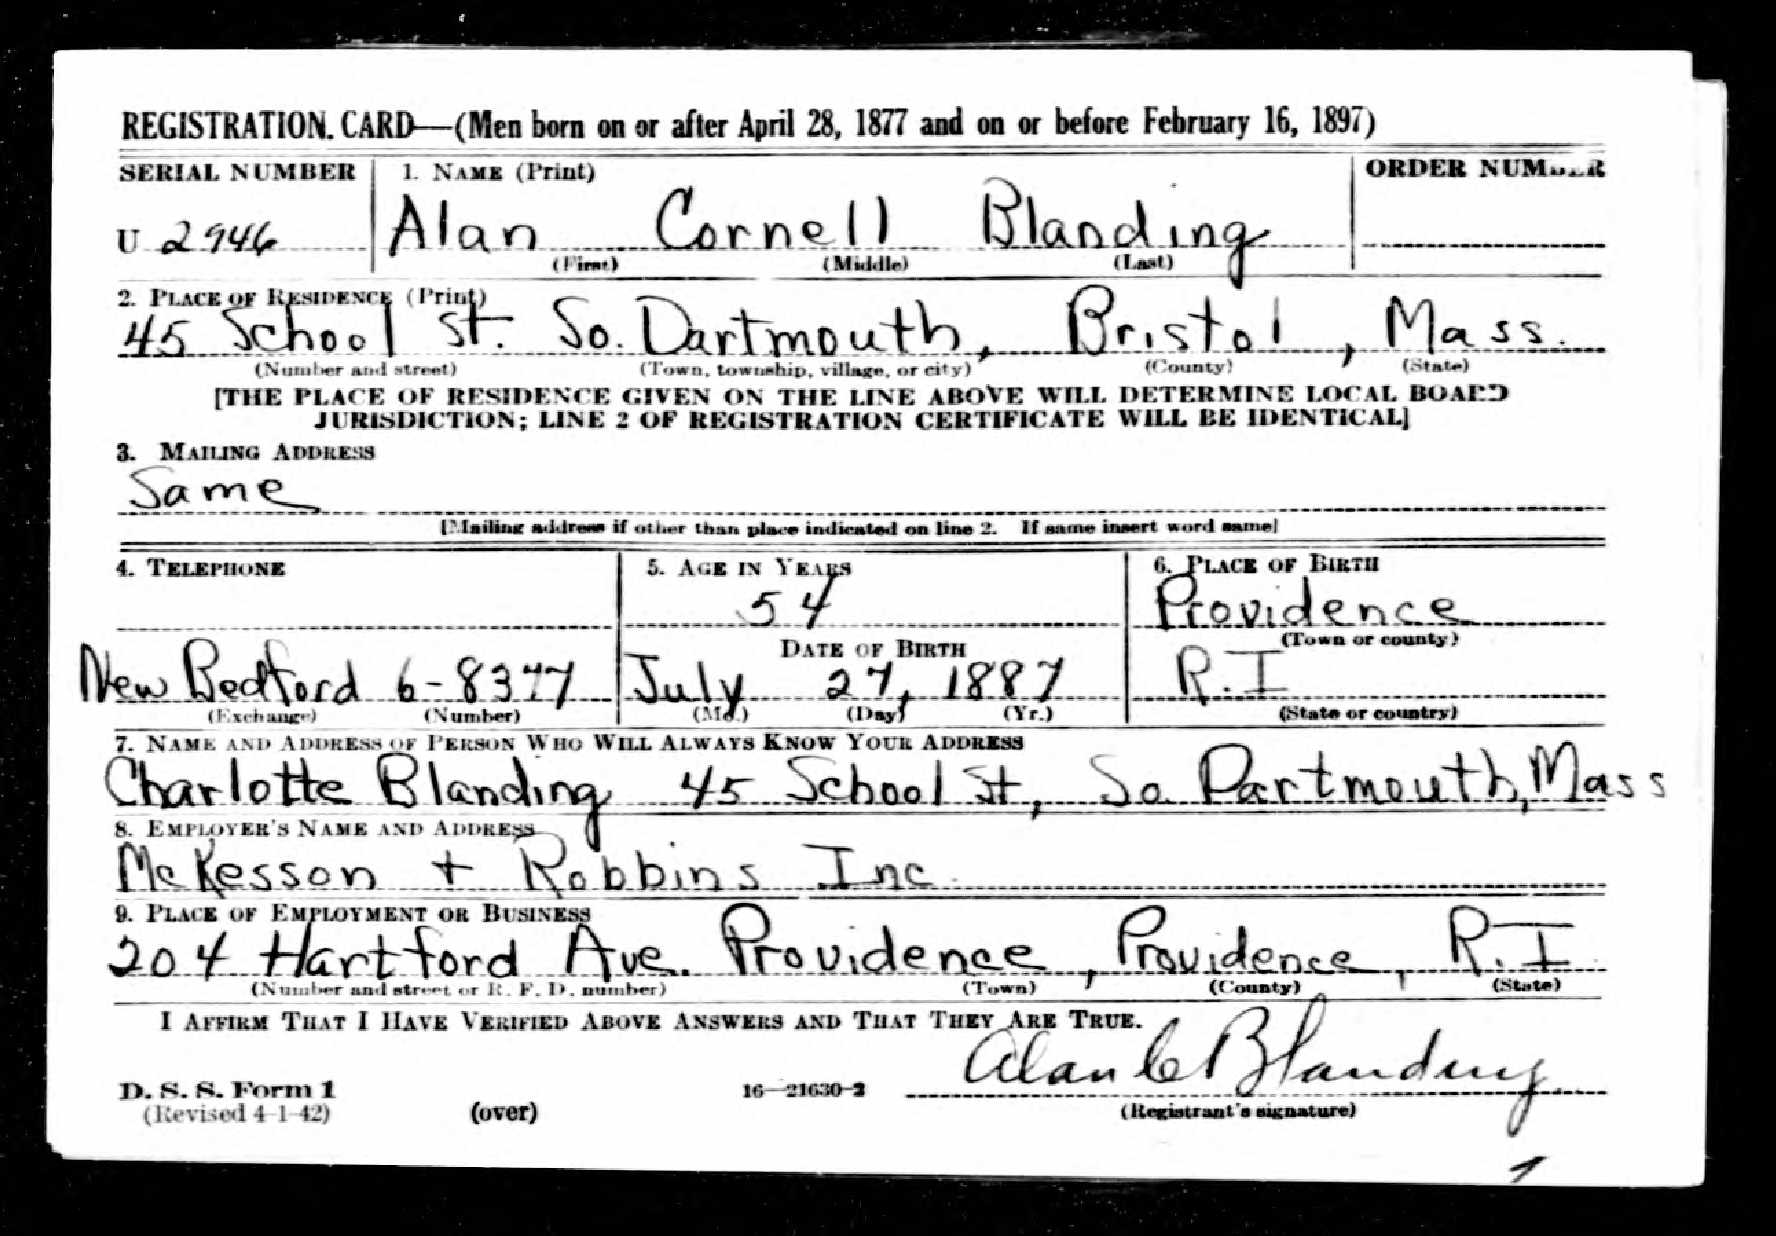 REGISTRATION CARD—(Men born on or after April 28, 1877 and on or before February 16, 1897)
SERIAL NUMBER 1. NAME (Print) ORDER NUMBER
U 2946 Alan Cornell Blanding
(First) (Middle) (Last)
2. PLACE OF RESIDENCE (Print)
45 School St. So. Dartmouth, Bristol, Mass.
(Number and street) (Town, township, village, or city) (County) (State)
[THE PLACE OF RESIDENCE GIVEN ON THE LINE ABOVE WILL DETERMINE LOCAL BOARD
JURISDICTION; LINE 2 OF REGISTRATION CERTIFICATE WILL BE IDENTICAL]
3. MAILING ADDRESS
Same
[Mailing address if other than place indicated on line 2. If same insert word same]
4. TELEPHONE 5. AGE IN YEARS 6. PLACE OF BIRTH
54 Providence
DATE OF BIRTH (Town or county)
New Bedford 6-8377 July 27, 1887 R.I
(Exchange) (Number) (Mo.) (Day) (Yr.) (State or country)
7. NAME AND ADDRESS OF PERSON WHO WILL ALWAYS KNOW YOUR ADDRESS
Charlotte Blanding 45 School St, So. Dartmouth, Mass
8. EMPLOYER'S NAME AND ADDRESS
McKesson + Robbins Inc.
9. PLACE OF EMPLOYMENT OR BUSINESS
204 Hartford Ave. Providence, Providence, R.I.
(Number and street or R. F. D. number) (Town) (County) (State)
I AFFIRM THAT I HAVE VERIFIED ABOVE ANSWERS AND THAT THEY ARE TRUE.
Alan C Blanding
D. S. S. Form 1 16—21630-2
(Revised 4-1-42) (over) (Registrant's signature)